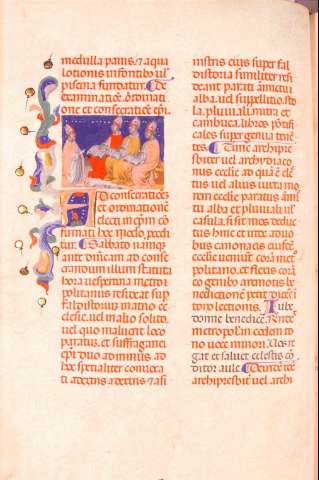 medulla panis, et aqua
lotionis in fontibus ul
piscina fundatur. De
examinatione ordinati
one et consecratione epi.
Ad consecratione
et ordinatione
electi in epm con
firmati hoc modo procedi
tur. Sabbato namque
ante diuicam ad conse
crandum illum statuta
hora uespertina metro
politanus resideat sup
faldistorium in atrio ec
clesie, uel in alio solito,
uel quo maluerit loco
paratus, et suffraganei
epi duo ad minus ad
hoc specialiter conuoca
ti a dextris et
sinistris eius super fal
distoria similiter resi
deant parati amictu
alba, uel suppellitio, sto
la, pluuiali, mitra et
cambuca, libros
super genua tenen
tes. Tunc archipre
sbiter uel archydiaco
nus ecclesie ad quam elec
tus uel alius iuxta mo
rem ecclesie paratus ami
tu alba et pluuiali ul
casula, si sit mos, deduc
tus hinc et inde a duo
bus canonicis eiusdem
ecclesie ueniunt coram me
politano, et flexis coram
eo genibus
nedictionem petit dicens in
tono lectionis. Iube
domne benedicere.
metropolitanus eodem to
no uoce minori. Nos re
gat et saluet celestis con
ditor aule. Deinde idem
archipresbiter uel archi